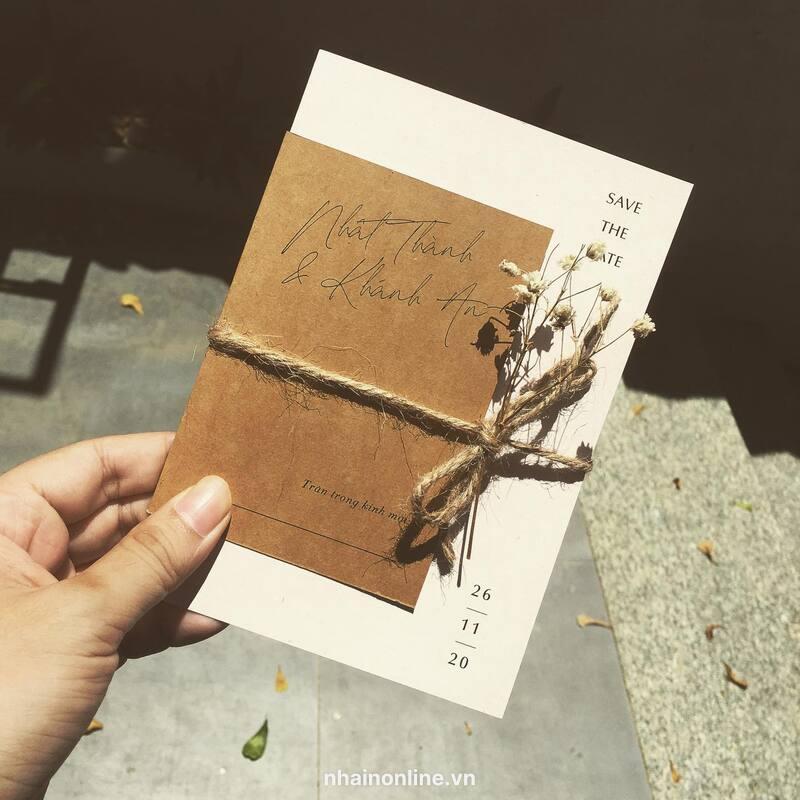 Nhất Thành
& Khánh An
Trân trọng kính mời
SAVE
THE
ATE
26
11
20
nhainonline.vn